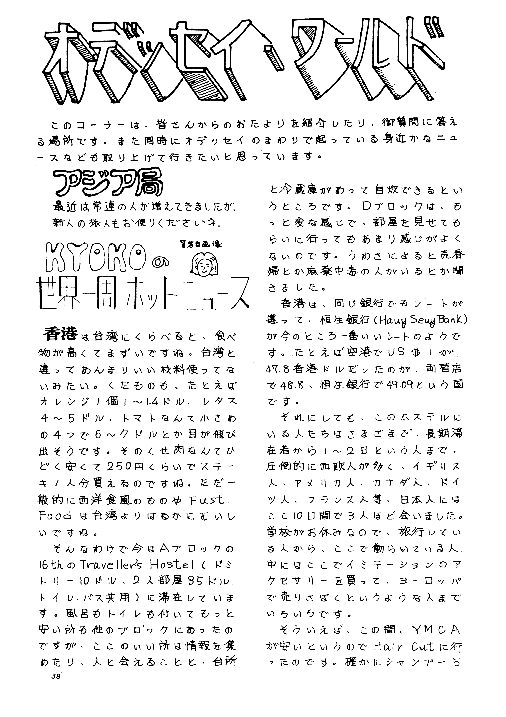 オデッセイ・ワールド
このコーナーは、皆さんからのおたよりを紹介したり、御質問に答え
る場所です。また同時にオデッセイのまわりで起っている身近かなニュ
ースなども取り上げて行きたいと思っています。
アジア局
最近は常連の人が増えてきましたが、
新人の旅人もお便りくださいネ。
KYOKOの
世界一周ホットニュース
香港は台湾にくらべると、食べ
物が高くてまずいですね。台湾と
違ってあんまりいい材料使ってな
いみたい。くだものも、たとえば
オレンジ1個1〜1.4ドル、レタス
4〜5ドル、トマトなんて小さめ
の4つで6〜7ドルとか目が飛び
出そうです。そのくせ肉なんてひ
どく安くて250円くらいでステー
キ1人分買えるのですね。ただ一
般的に西洋食風のものやFast
Foodは台湾よりはるかにおいし
いですね。
そんなわけで今はAブロックの
16thのTraveller's Hostel(ドミ
トリー10ドル、2人部屋35ドル、
トイレ・バス共用)に滞在していま
す。風呂もトイレも付いてもっと
安い所も他のブロックにあったの
ですが、ここのいい所は情報を集
めたり、人と会えることと、台所
と冷蔵庫があって自炊できるとい
うところです。Dブロックは、も
っと変な感じで、部屋を見せても
らいに行ってもあまり感じがよく
ないのです。うわさによると売春
婦とか麻薬中毒の人がいるとか聞
きました。
香港は、同じ銀行でもレートが
違って、恒生銀行(Hang Seng Bank)
が今のところ一番いいレートのようで
す。たとえば空港でUS$1が、
47.8香港ドルだったのが、両替店
で48.8、恒生銀行で49.09という図
です。
それにしても、このホステルに
いる人たちはさまざまで、長期滞
在者から1〜2日という人まで、
圧倒的に西欧人が多く、イギリス
人、アメリカ人、カナダ人、ドイ
ツ人、フランス人等、日本人には
ここ10日間で3人ほど会いました。
学校がお休みなので、旅行してい
る人から、ここで働らいている人、
中にはここでイミテーションのア
クセサリーを買って、ヨーロッパ
で売りさばくというような人まで
いろいろです。
そういえば、この間、YMCA
が安いというのでHair Cutに行
ったのです。確かにシャンプーも
38